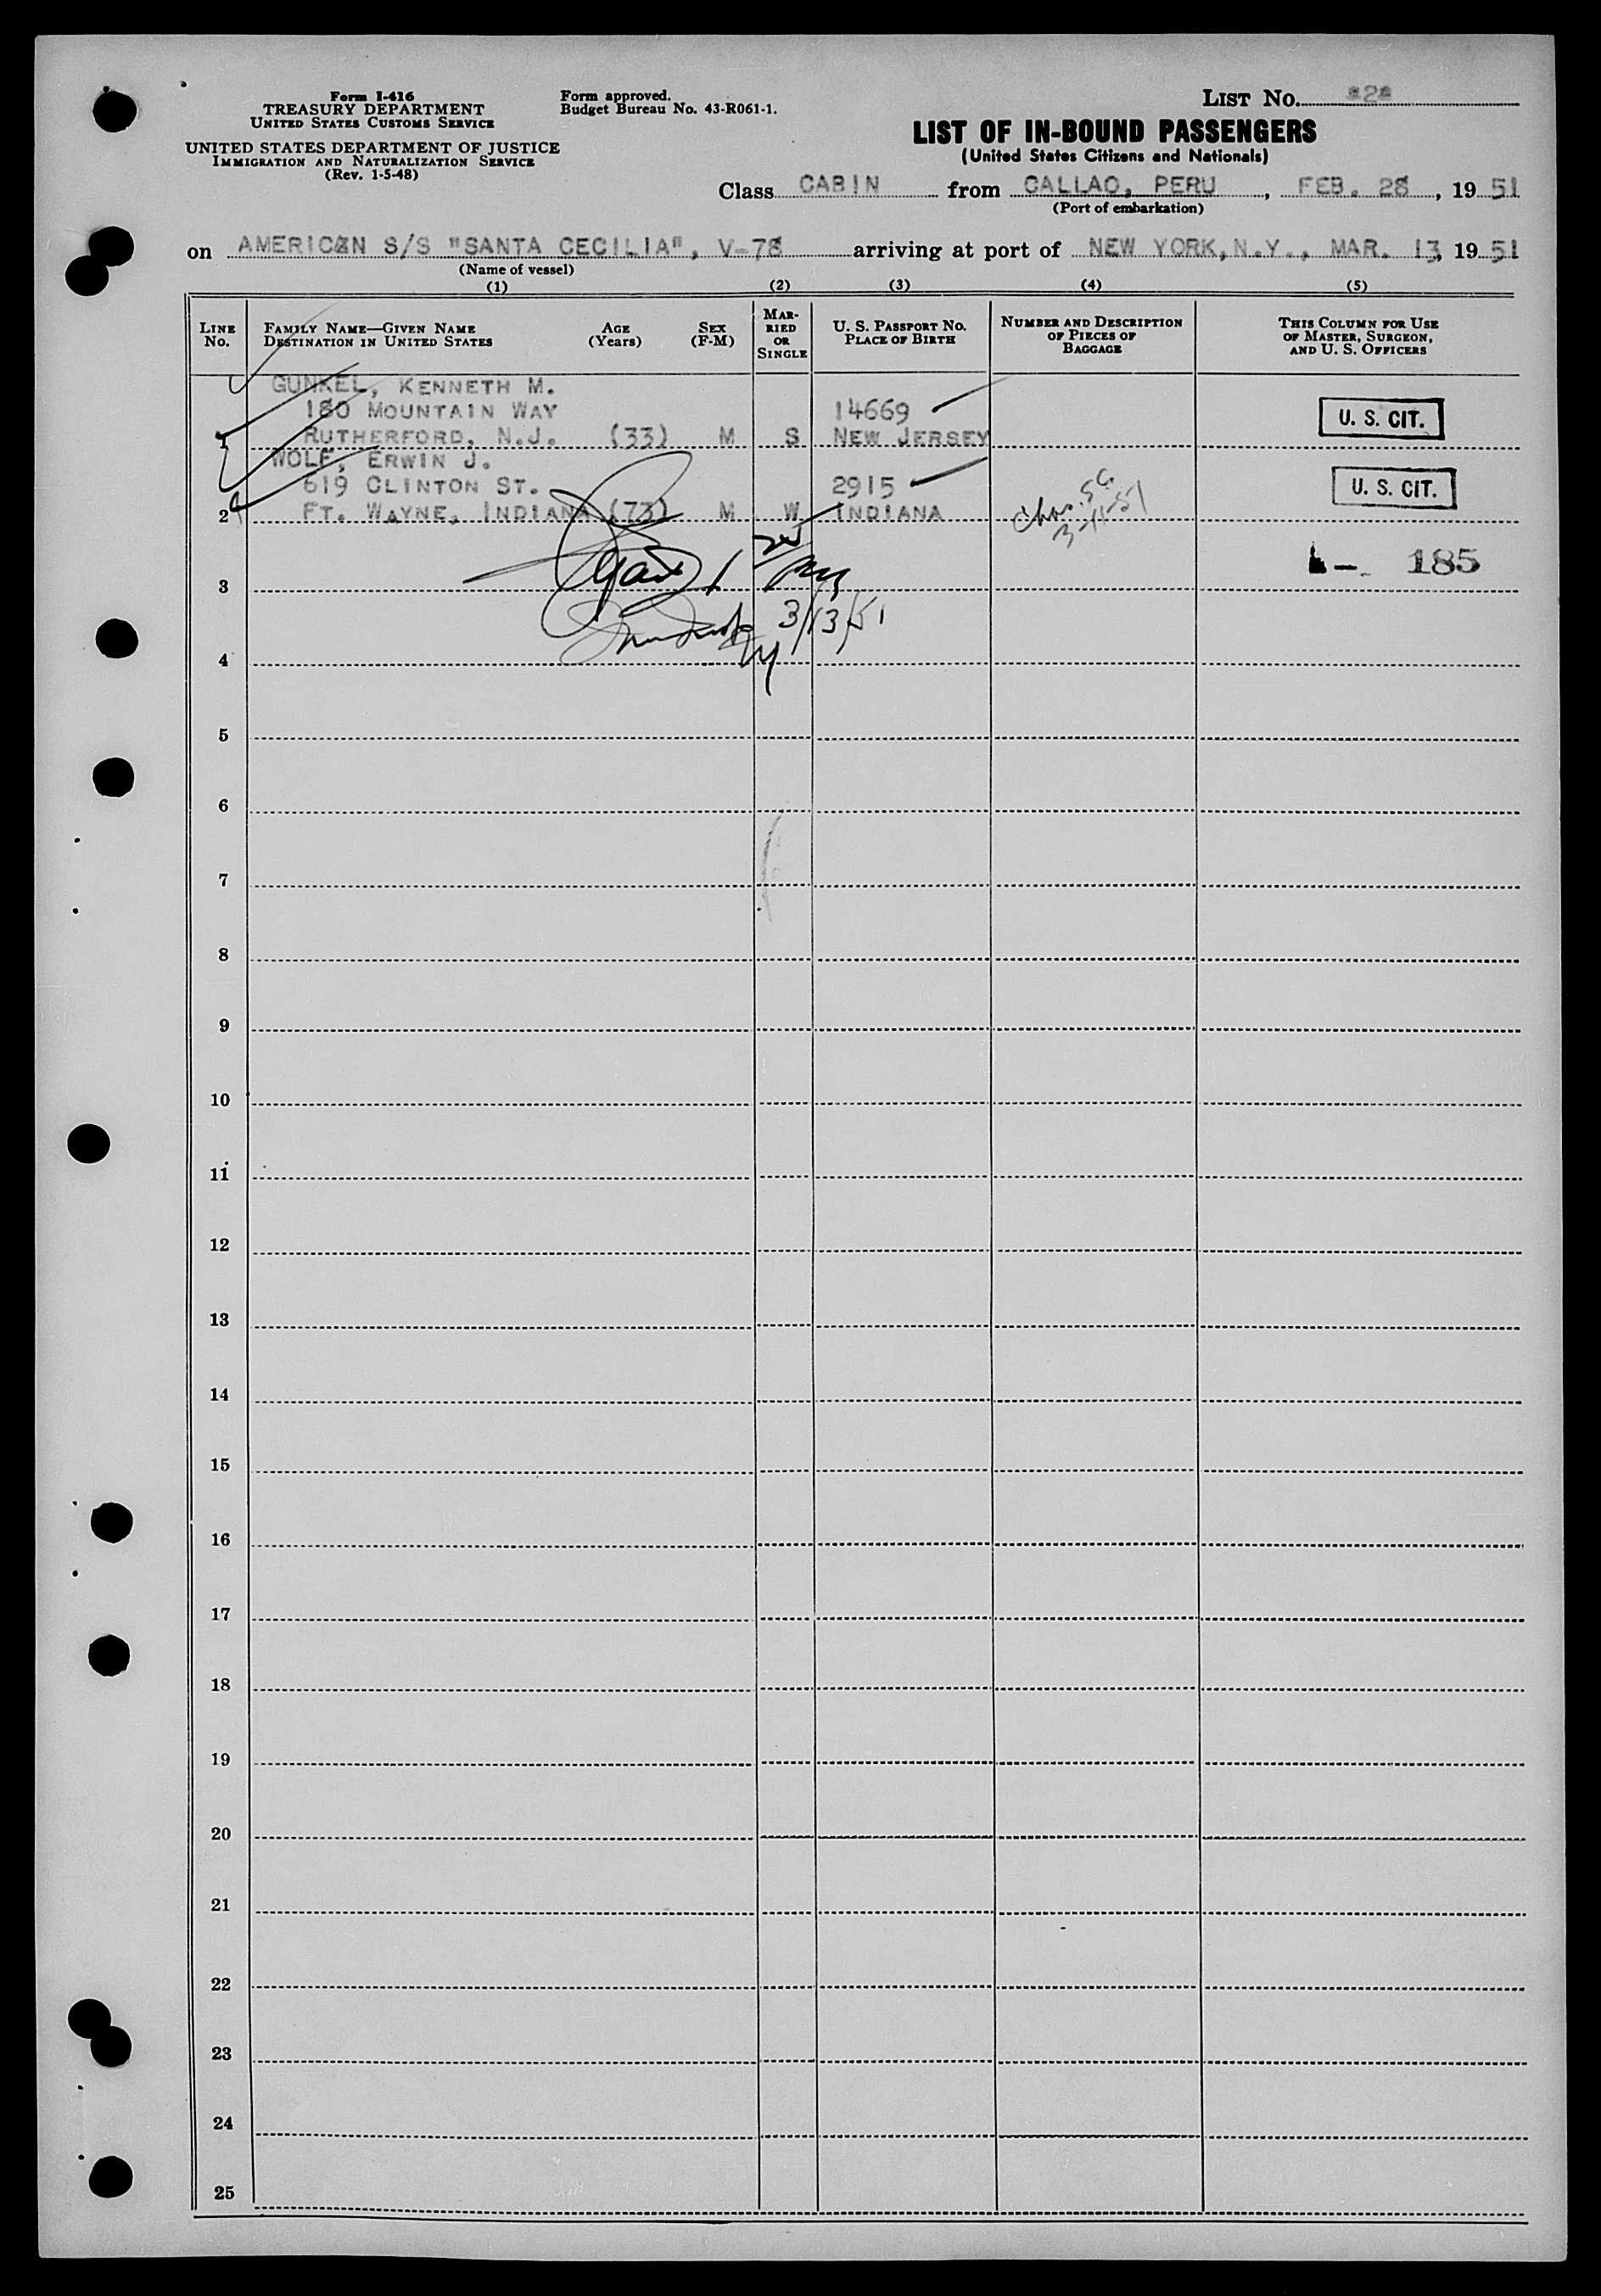 Form I-416
TREASURY DEPARTMENT
UNITED STATES CUSTOMS SERVICE
UNITED STATES DEPARTMENT OF JUSTICE
IMMIGRATION AND NATURALIZATION SERVICE
(Rev. 1-5-48)
Form approved.
Budget Bureau No. 43-R061-1.
LIST No. *2*
LIST OF IN-BOUND PASSENGERS
(United States Citizens and Nationals)
Class CABIN from CALLAO, PERU, FEB. 28, 1951
(Port of embarkation)
on AMERICAN S/S "SANTA CECILIA", V-78 arriving at port of NEW YORK, N.Y., MAR. 13, 1951
(Name of vessel)
(1) (2) (3) (4) (5)
LINE No.
FAMILY NAME—GIVEN NAME
DESTINATION IN UNITED STATES
AGE (Years)
SEX (F-M)
MARRIED OR SINGLE
U. S. PASSPORT NO.
PLACE OF BIRTH
NUMBER AND DESCRIPTION OF PIECES OF BAGGAGE
THIS COLUMN FOR USE OF MASTER, SURGEON, AND U. S. OFFICERS
GUNKEL, KENNETH M.
180 MOUNTAIN WAY 14669 U. S. CIT.
1 RUTHERFORD, N.J. (33) M S NEW JERSEY
WOLF, ERWIN J.
619 CLINTON ST. 2915 U. S. CIT.
2 FT. WAYNE, INDIANA (73) M W INDIANA
Chas. SC.
3-11-51
185
3
3/13/51
4
5
6
7
8
9
10
11
12
13
14
15
16
17
18
19
20
21
22
23
24
25